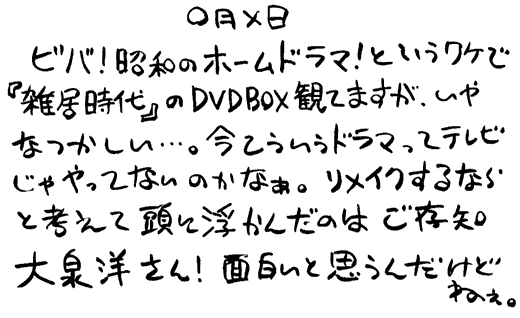 〇月×日
ビバ!昭和のホームドラマ!というワケで
『雑居時代』のDVDBOX観てますが、いや
なつかしい…。今こういうドラマってテレビ
じゃやってないのかなぁ。リメイクするなら
と考えて頭に浮かんだのはご存知
大泉洋さん!面白いと思うんだけど
ねぇ。